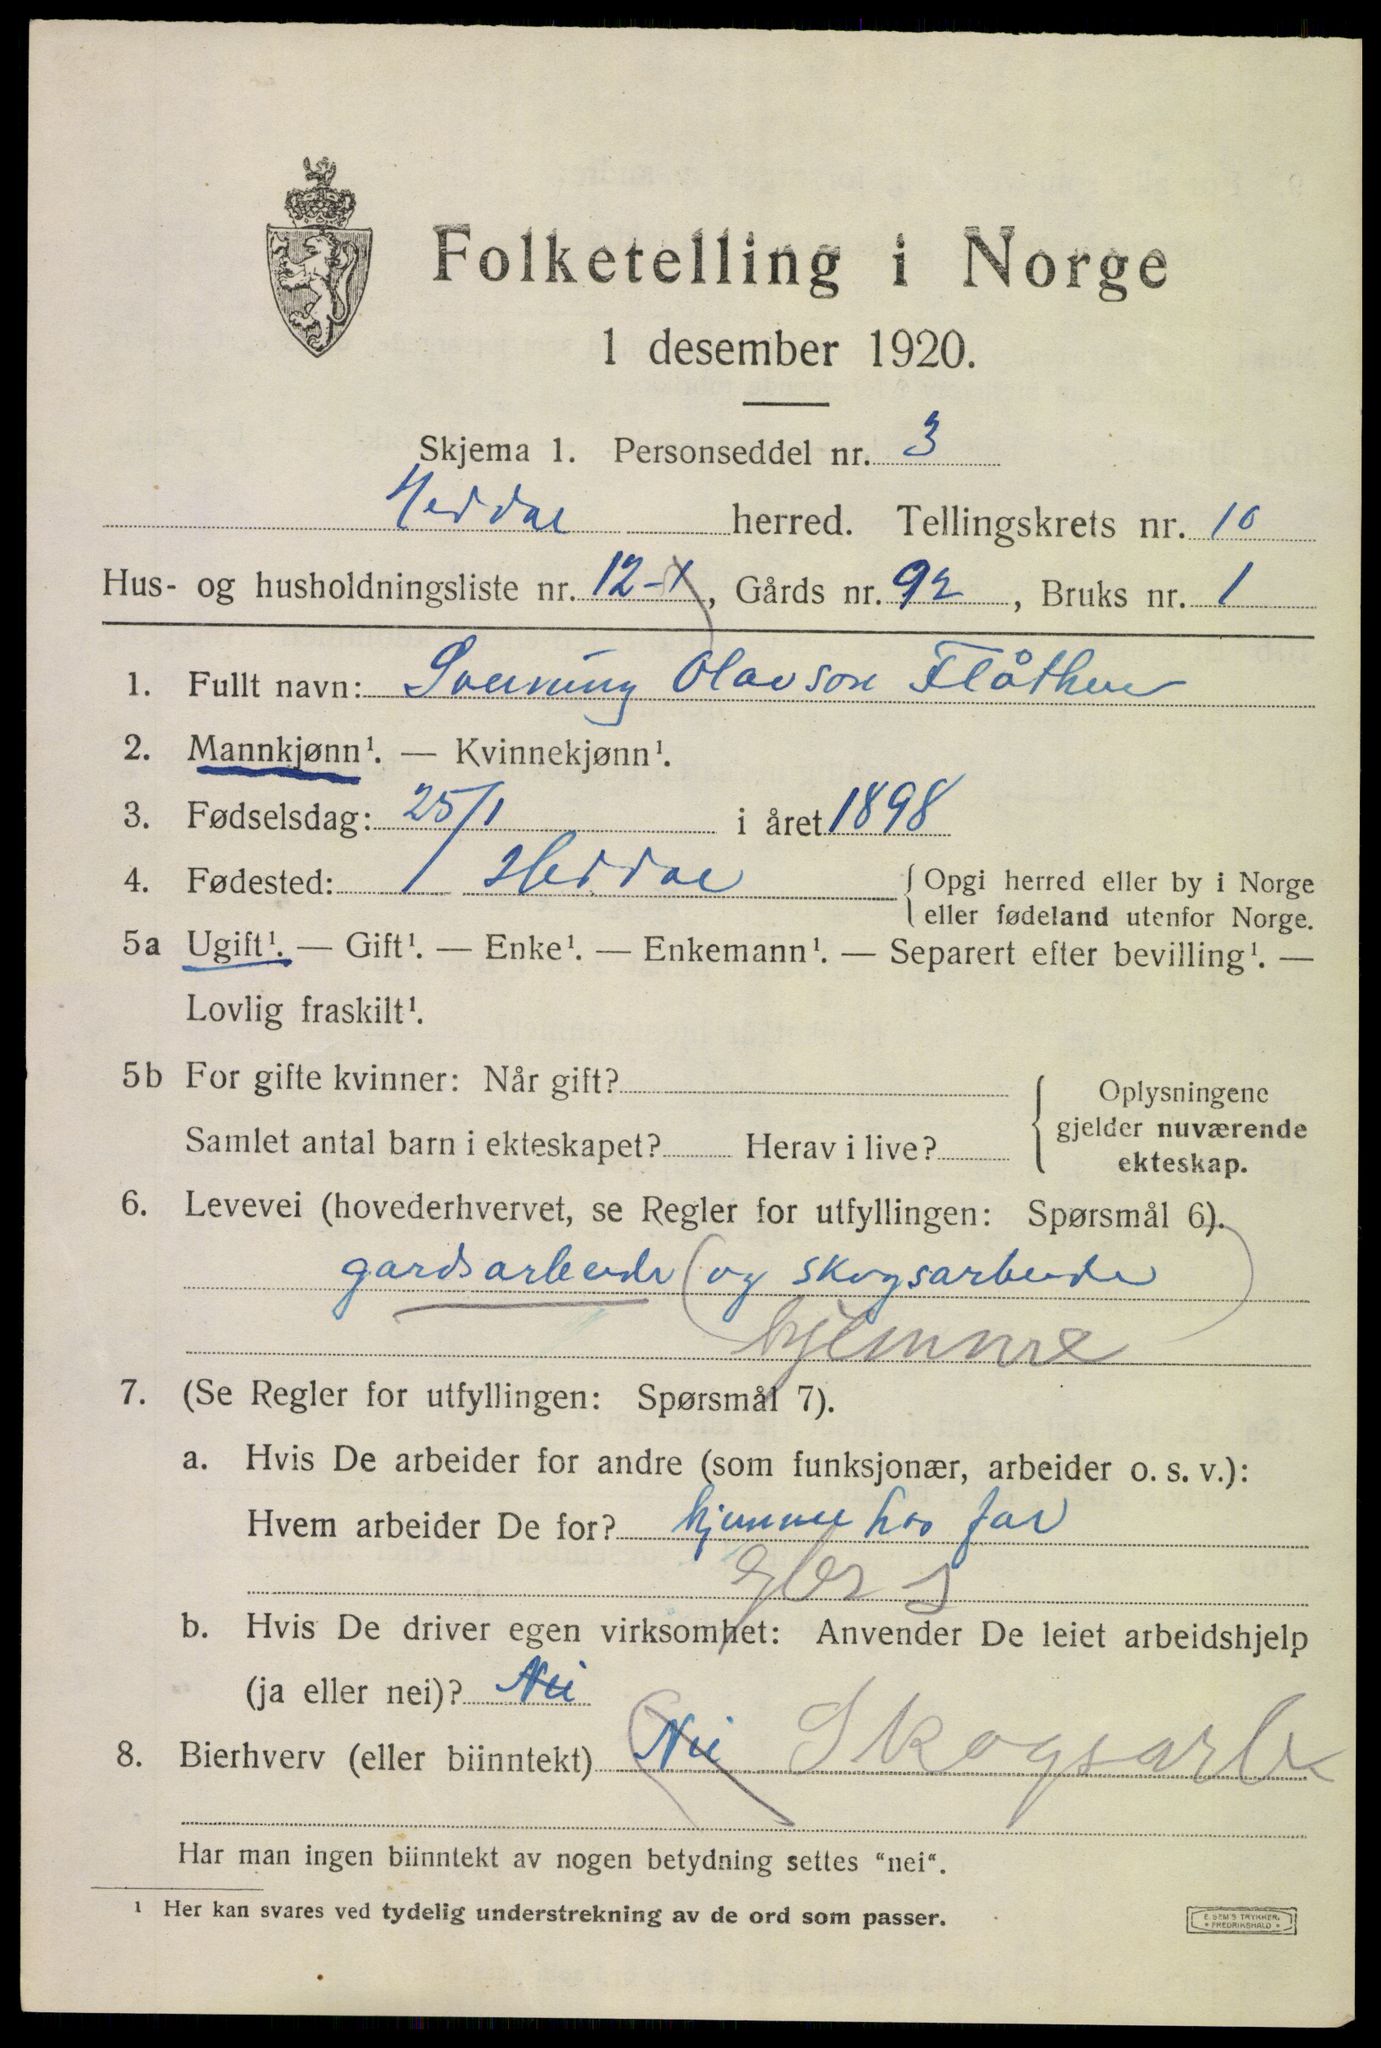 Folketelling i Norge
1 desember 1920.
Skjema 1. Personseddel nr. 3
Heddal herred. Tellingskrets nr. 10
Hus- og husholdningsliste nr. 12-1, Gårds nr. 92, Bruks nr. 1
1. Fullt navn: Sveinung Olavson Flåthen
2. Mannkjønn¹. — Kvinnekjønn¹.
3. Fødselsdag: 25/1 i året 1898
4. Fødested: Heddal { Opgi herred eller by i Norge
eller fødeland utenfor Norge.
5a Ugift¹. — Gift¹. — Enke¹. — Enkemann¹. — Separert efter bevilling¹. —
Lovlig fraskilt¹.
5b For gifte kvinner: Når gift?
Samlet antal barn i ekteskapet? Herav i live?
Oplysningene
gjelder nuværende
ekteskap.
6. Levevei (hovederhvervet, se Regler for utfyllingen: Spørsmål 6).
gardsarbeide (og skogsarbeide)
hjemme
7. (Se Regler for utfyllingen: Spørsmål 7).
a. Hvis De arbeider for andre (som funksjonær, arbeider o. s. v.):
Hvem arbeider De for? hjemme hos far
gbr s
b. Hvis De driver egen virksomhet: Anvender De leiet arbeidshjelp
(ja eller nei)? Nei
8. Bierhverv (eller biinntekt) Nei Skogsarb
Har man ingen biinntekt av nogen betydning settes "nei".
¹ Her kan svares ved tydelig understrekning av de ord som passer.
E. SEM'S TRYKKERI
FREDRIKSHALD